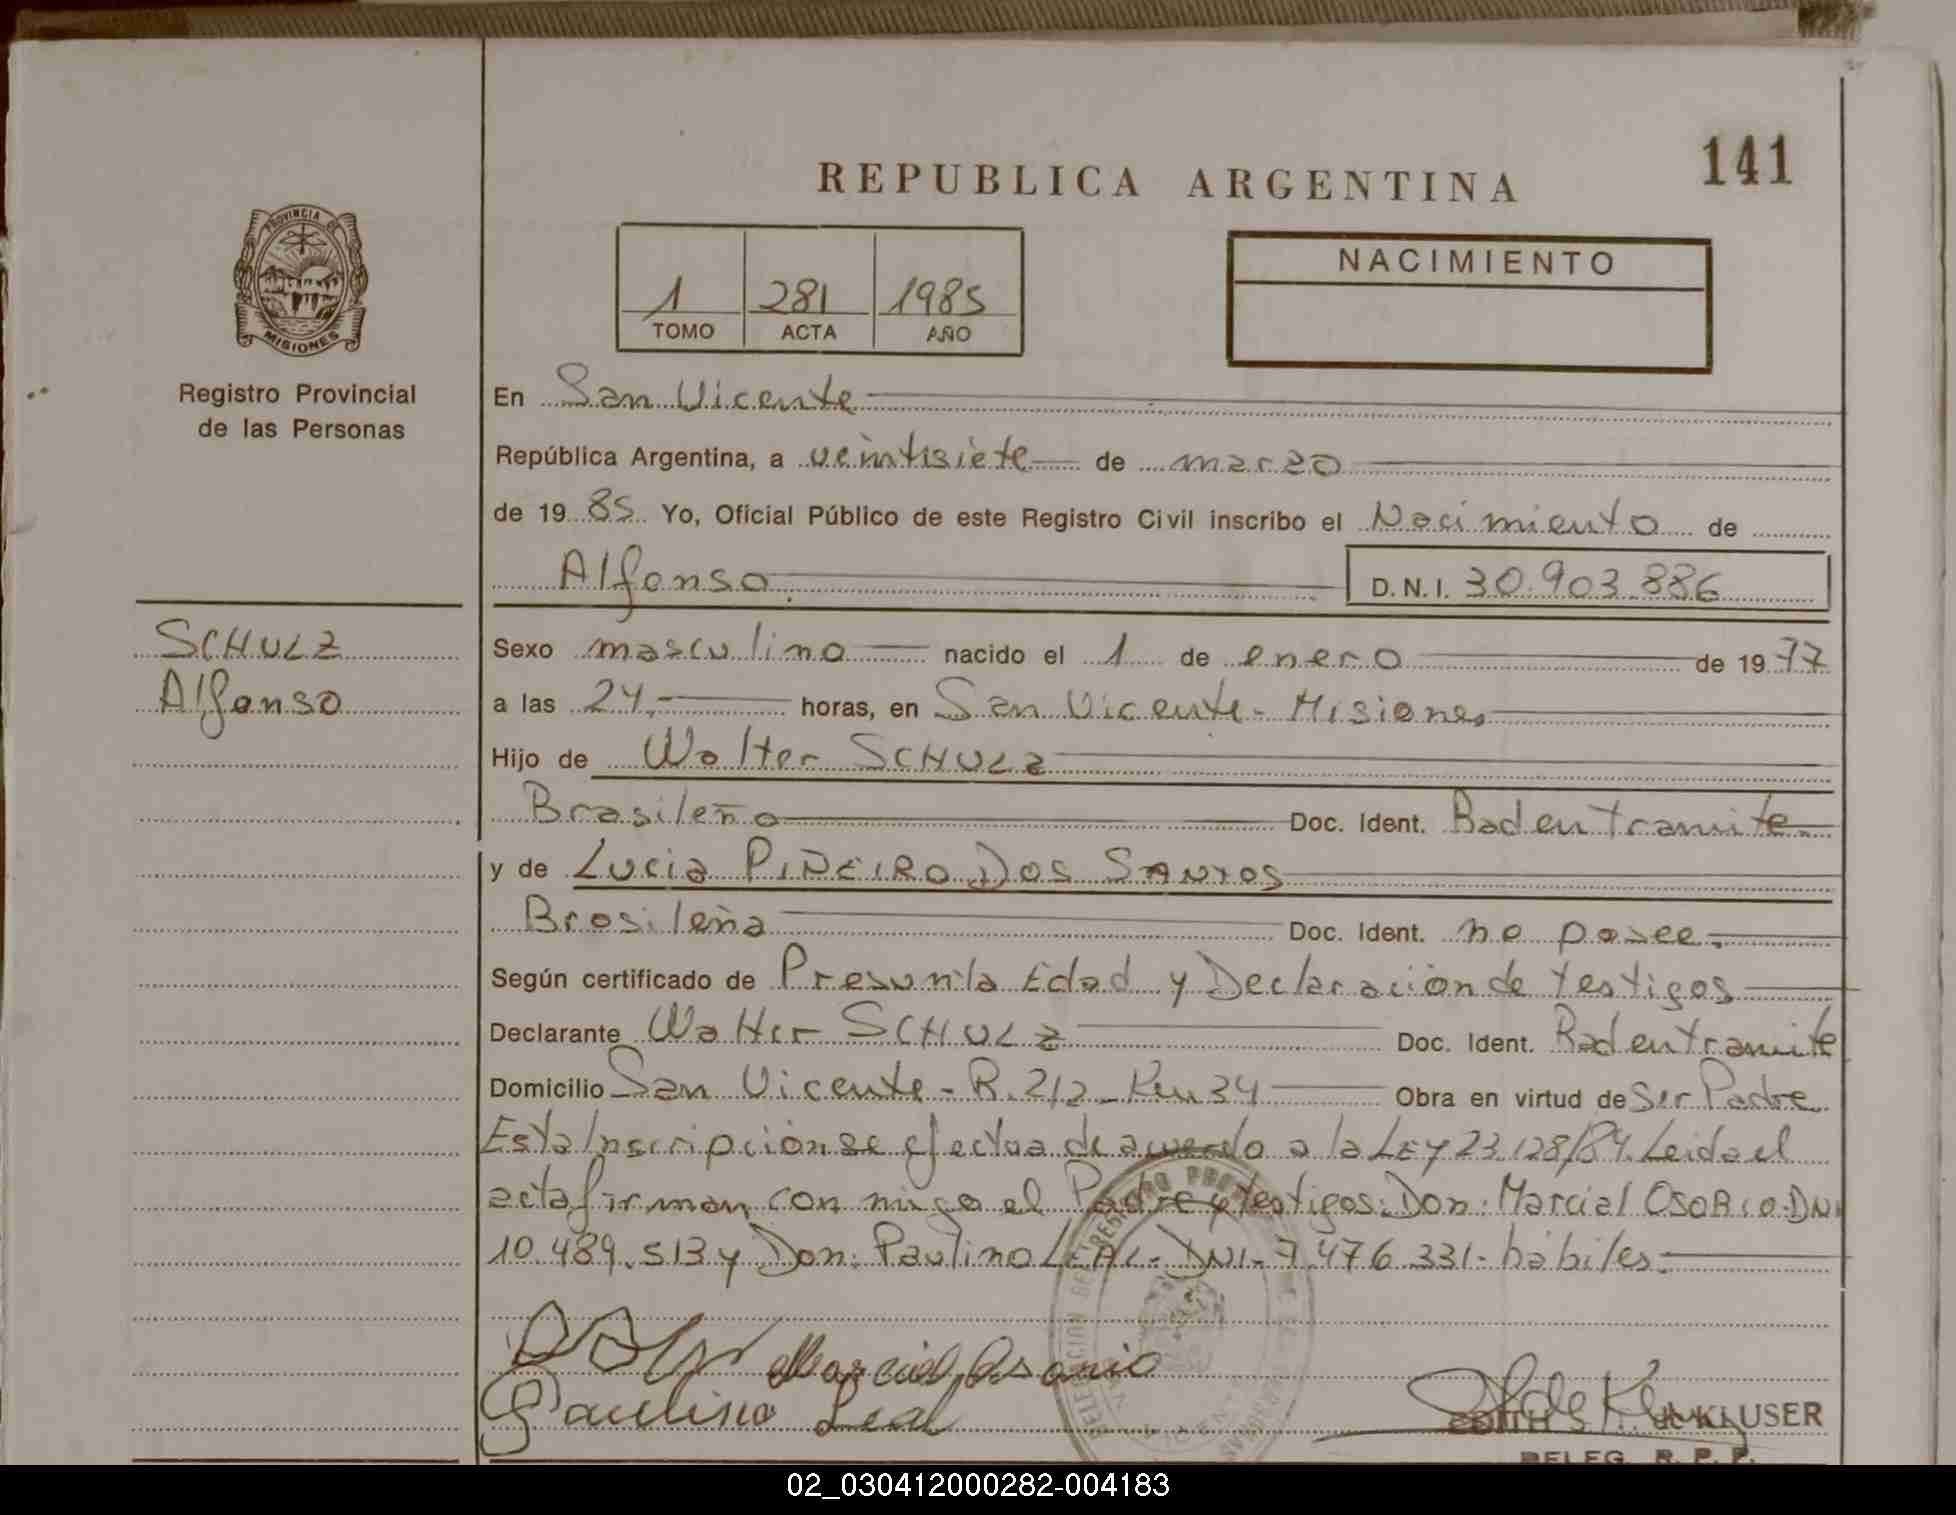 141
REPUBLICA ARGENTINA
PROVINCIA DE
MISIONES
Registro Provincial
de las Personas
1 281 1985
TOMO ACTA AÑO
NACIMIENTO
En San Vicente
República Argentina, a veintisiete de marzo
de 19 85 Yo, Oficial Público de este Registro Civil inscribo el Nacimiento de
Alfonso D.N.I. 30.903.886
SCHULZ
Alfonso
Sexo masculino nacido el 1 de enero de 19 77
a las 24 horas, en San Vicente - Misiones
Hijo de Walter SCHULZ
Brasileño Doc. Ident. Rad en tramite.
y de Lucia PIÑEIRO DOS SANTOS
Brasileña Doc. Ident. no posee.
Según certificado de Presunta Edad y Declaración de testigos
Declarante Walter SCHULZ Doc. Ident. Rad en tramite
Domicilio San Vicente - R. 212 - Km 34 Obra en virtud de Ser Padre
Esta Inscripción se efectua de acuerdo a la LEY 23.128/84. Leida el
acta firman con migo el Padre y testigos: Don: Marcial OSORIO. DNI
10.489.513 y Don: Paulino LEAL - DNI - 7.476.331 - hábiles.
Marcial Osorio
Paulino Leal
EDITH KLUSER
DELEG. R. P. P.
02_030412000282-004183